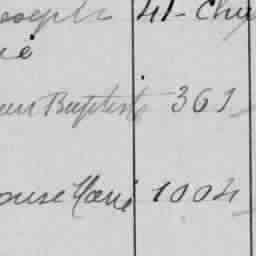 oseph 41 - Chu
ié
ean Baptiste 361
ouise Marie 1004